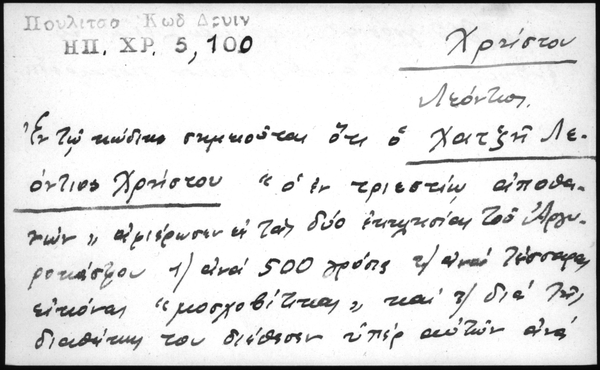 Πουλιτσα Κωδ Δρυιν
ΗΠ. ΧΡ. 5, 100
Χρήστου
Λεόντιος.
Ἐν τῷ κώδικι σημειοῦται ὅτι ὁ Χατζῆ Λε-
όντιος Χρήστου "ὁ ἐν τριεστίῳ ἀποθα-
νών" ἀφιέρωσεν εἰ τὰς δύο ἐκκλησίας τοῦ Ἀργυ-
ροκάστρου 1/ ἀνὰ 500 γρόσια 2/ ἀνὰ τέσσαρας
εἰκόνας "μοσχοβίτικας" καὶ 3/ διὰ τῆς
διαθήκης του διέθεσεν ὑπὲρ αὐτῶν ἀνὰ